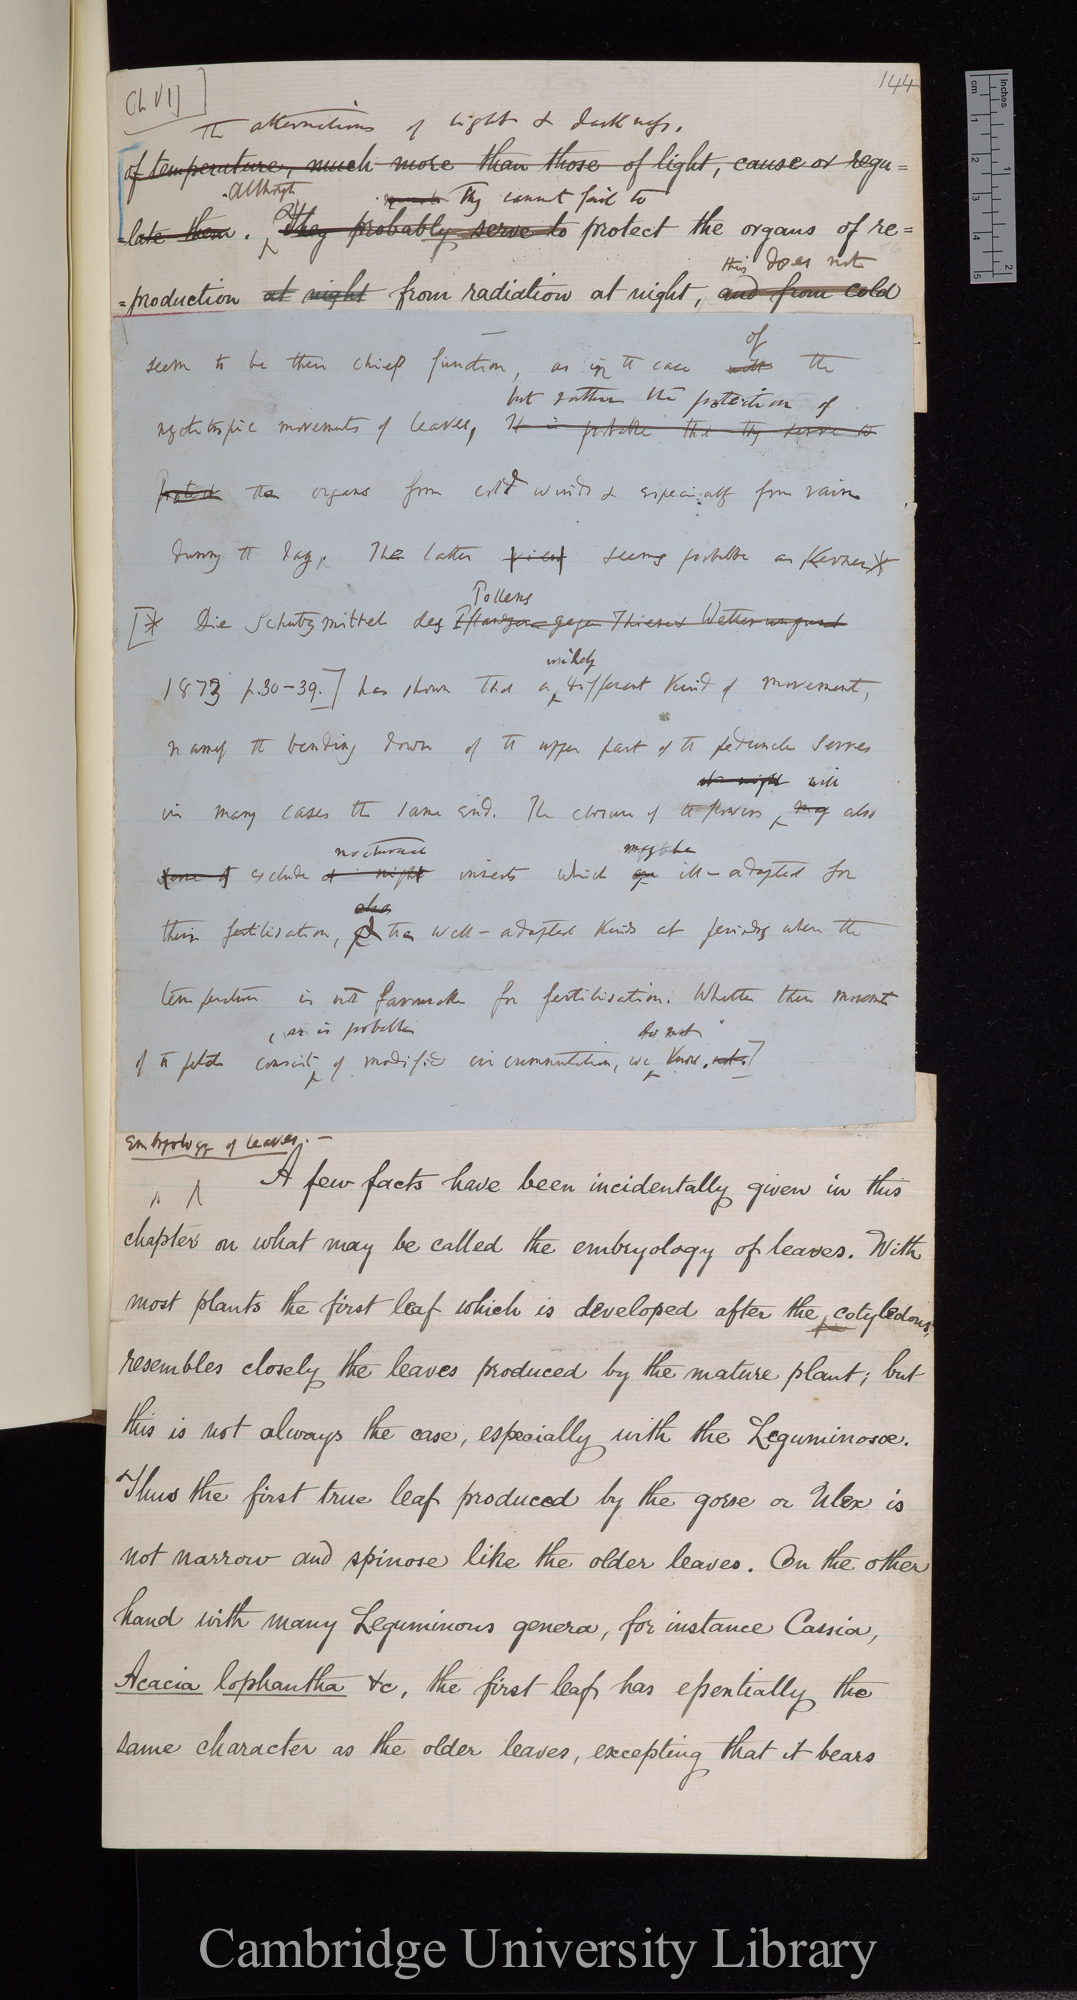 144
[Ch VI]
The alternations of light & darkness.
of temperature, much more than those of light, cause or regu=
Although
They cannot fail to
=late them. They probably serve to protect the organs of re=
this does not
=production at night from radiation at night, and from cold
of
seem to be their chief function, as in the case with the
but rather the protection of
nyctitropic movements of leaves, It is probable that they serve to
protect the organs from cold winds & especially from rain
during the day. The latter view seems probable as Kerner*
Pollens
[* Die Schutzmittel des Pflanzen gegen Thiere & Wetterungunst
widely
1873 p.30-39.] has shown that a different kind of movement,
namely the bending down of the upper part of the peduncle serves
at night will
in many cases the same end. The closure of the flowers may also
nocturnal may be
some of exclude at night insects which are ill-adapted for
also
their fertilisation, & the well-adapted kinds at periods when the
temperature is not favourable for fertilisation. Whether these movements
, as is probable do not
of the petals consist of modified circumnutation, we know. not.]
Embryology of leaves.—
A few facts have been incidentally given in this
chapter on what may be called the embryology of leaves. With
most plants the first leaf which is developed after the cotyledons,
resembles closely the leaves produced by the mature plant; but
this is not always the case, especially with the Leguminosæ.
Thus the first true leaf produced by the gorse or Ulex is
not narrow and spinose like the older leaves. On the other
hand with many Leguminous genera, for instance Cassia,
Acacia lophantha &c, the first leaf has essentially the
same character as the older leaves, excepting that it bears
Inches
cm
1
2
3
4
5
1
2
Cambridge University Library